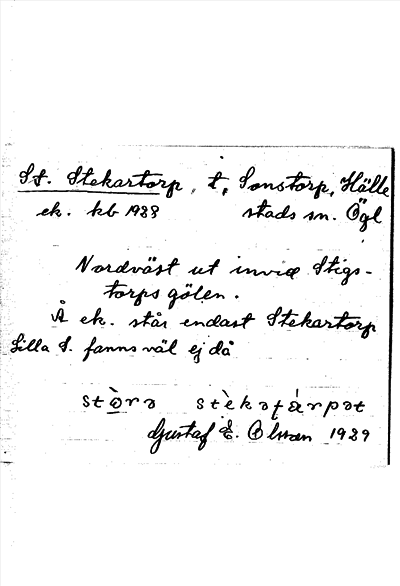 St. Stekartorp, t, Sonstorp, Hälle
ek. kb 1933 stads sn. Ögl
Nordväst ut invid Stigs-
torps gölen.
Å ek. står endast Stekartorp
Lilla S. fanns väl ej då
Gustaf E. Olsson 1939